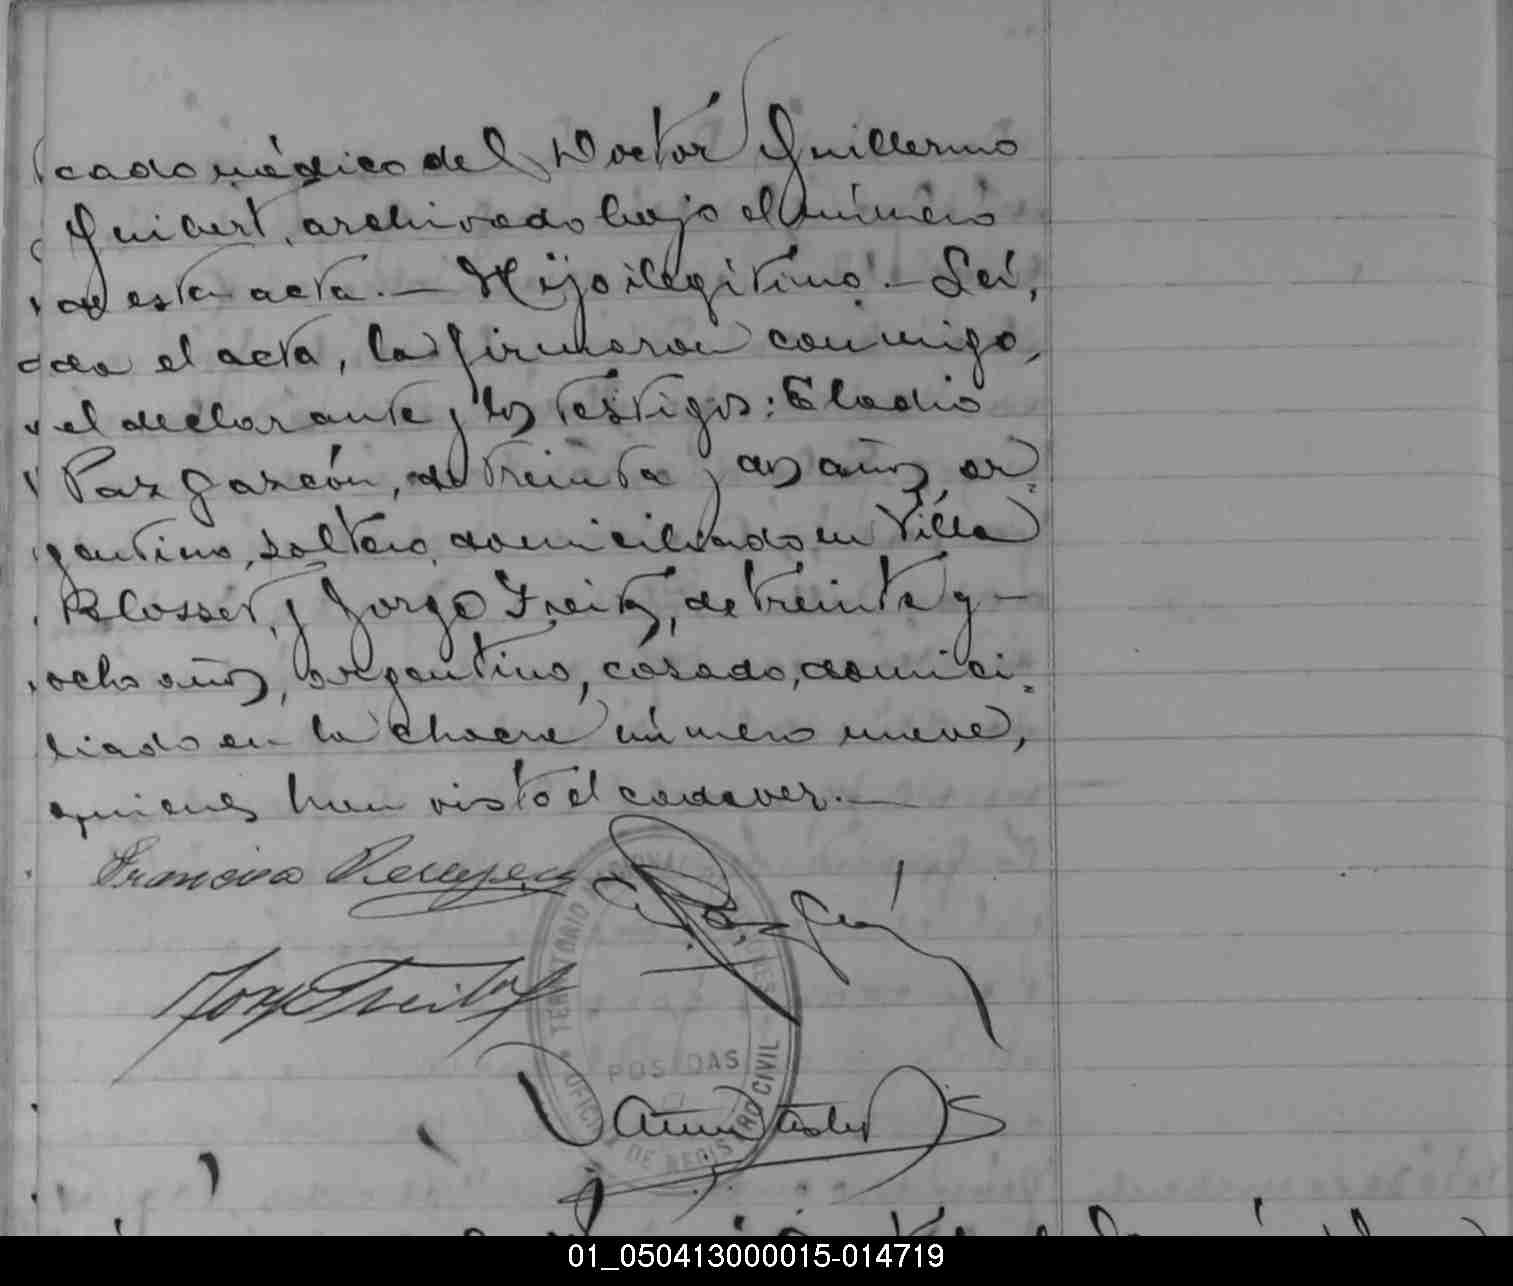 cado médico del Doctor Guillermo
Guibert, archivado bajo el número
de esta acta.— Hijo ilegítimo.— Leí,
da el acta, la firmaron conmigo,
el declarante y los testigos: Eladio
Paz Garzón, de treinta y dos años, ar=
gentino, soltero, domiciliado en Villa
Blosset, y Jorge Freitz, de treinta y—
ocho años, argentino, casado, domici=
liado en la chacra número nueve,
quienes han visto el cadaver.—
Francisco
Jorge
TERRITORIO NACIONAL
POSADAS
OFICINA DE REGISTRO CIVIL
01_050413000015-014719